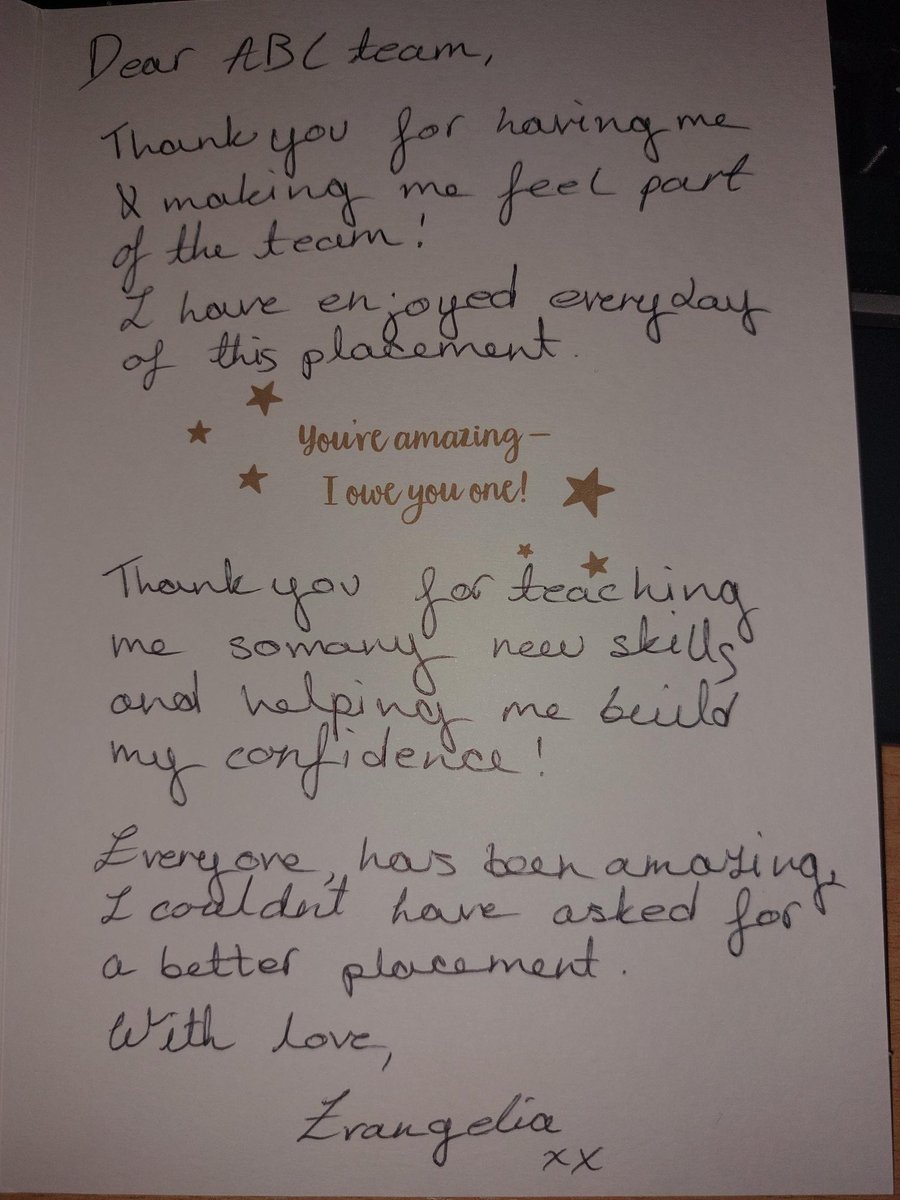 Dear ABC team,
Thank you for having me
& making me feel part
of the team!
I have enjoyed everyday
of this placement.
You're amazing –
I owe you one!
Thank you for teaching
me so many new skills
and helping me build
my confidence!
Everyone, has been amazing,
I couldn't have asked for
a better placement.
With love,
Evangelia
xx